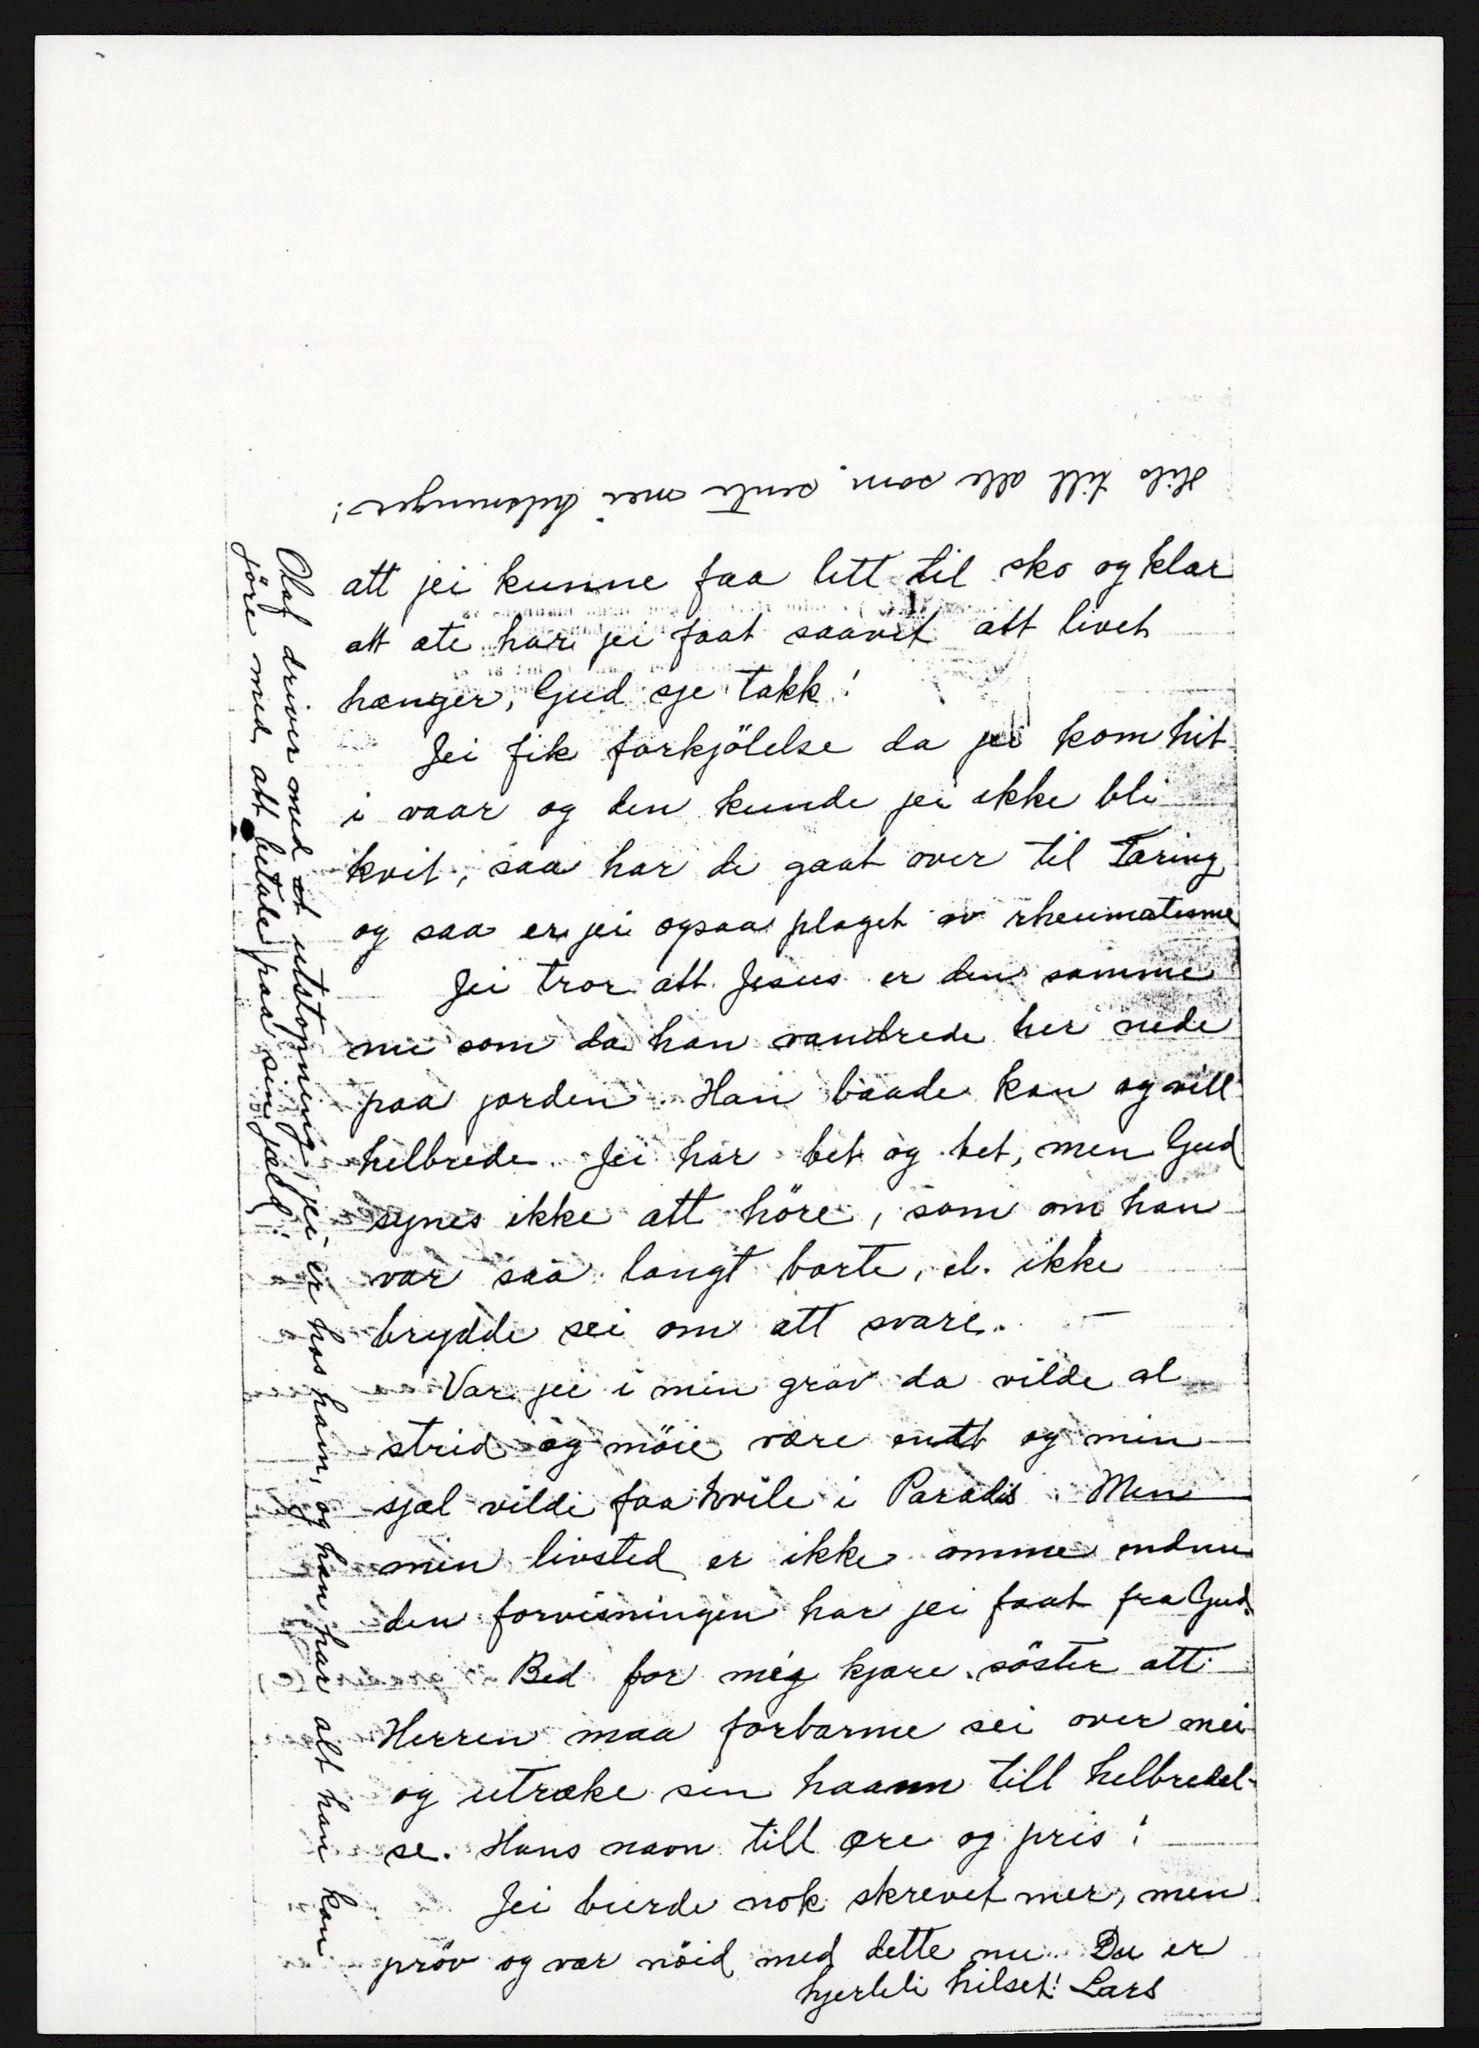 Hils till alle som sente mei hilsninger!
att jei kunne faa litt til sko og klær
att æte har jei faat saavit att livet
hænger, Gud sje takk!
Jei fik forkjölelse da jei kom hit
i vaar og den kunde jei ikke bli
kvit, saa har de gaat over til Tæring
og saa er jei ogsaa plaget av rheumatisme
Jei tror att Jesus er den samme
nu som da han vandrede her nede
paa jorden. Han baade kan og vill
helbrede. Jei har bet og bet, men Gud
synes ikke att höre, som om han
var saa langt borte, el. ikke
brydde sei om att svare. —
Var jei i min grav da vilde al
strid og möie være endt og min
sjæl vilde faa hvile i Paradis. Men
min livsted er ikke omme endnu
den forvisningen har jei faat fra Gud.
Bed for meg kjære söster att
Herren maa forbarme sei over mei
og utræke sin haann till helbredel-
se. Hans navn till ære og pris!
Jei burde nok skrevet mer, men
pröv og vær nöid med dette nu. Du er
hjerteli hilset! Lars
Olaf driver med et utstopning, jei er hos ham, og han har alt han kan
jöre med att betale paa sin jæld.